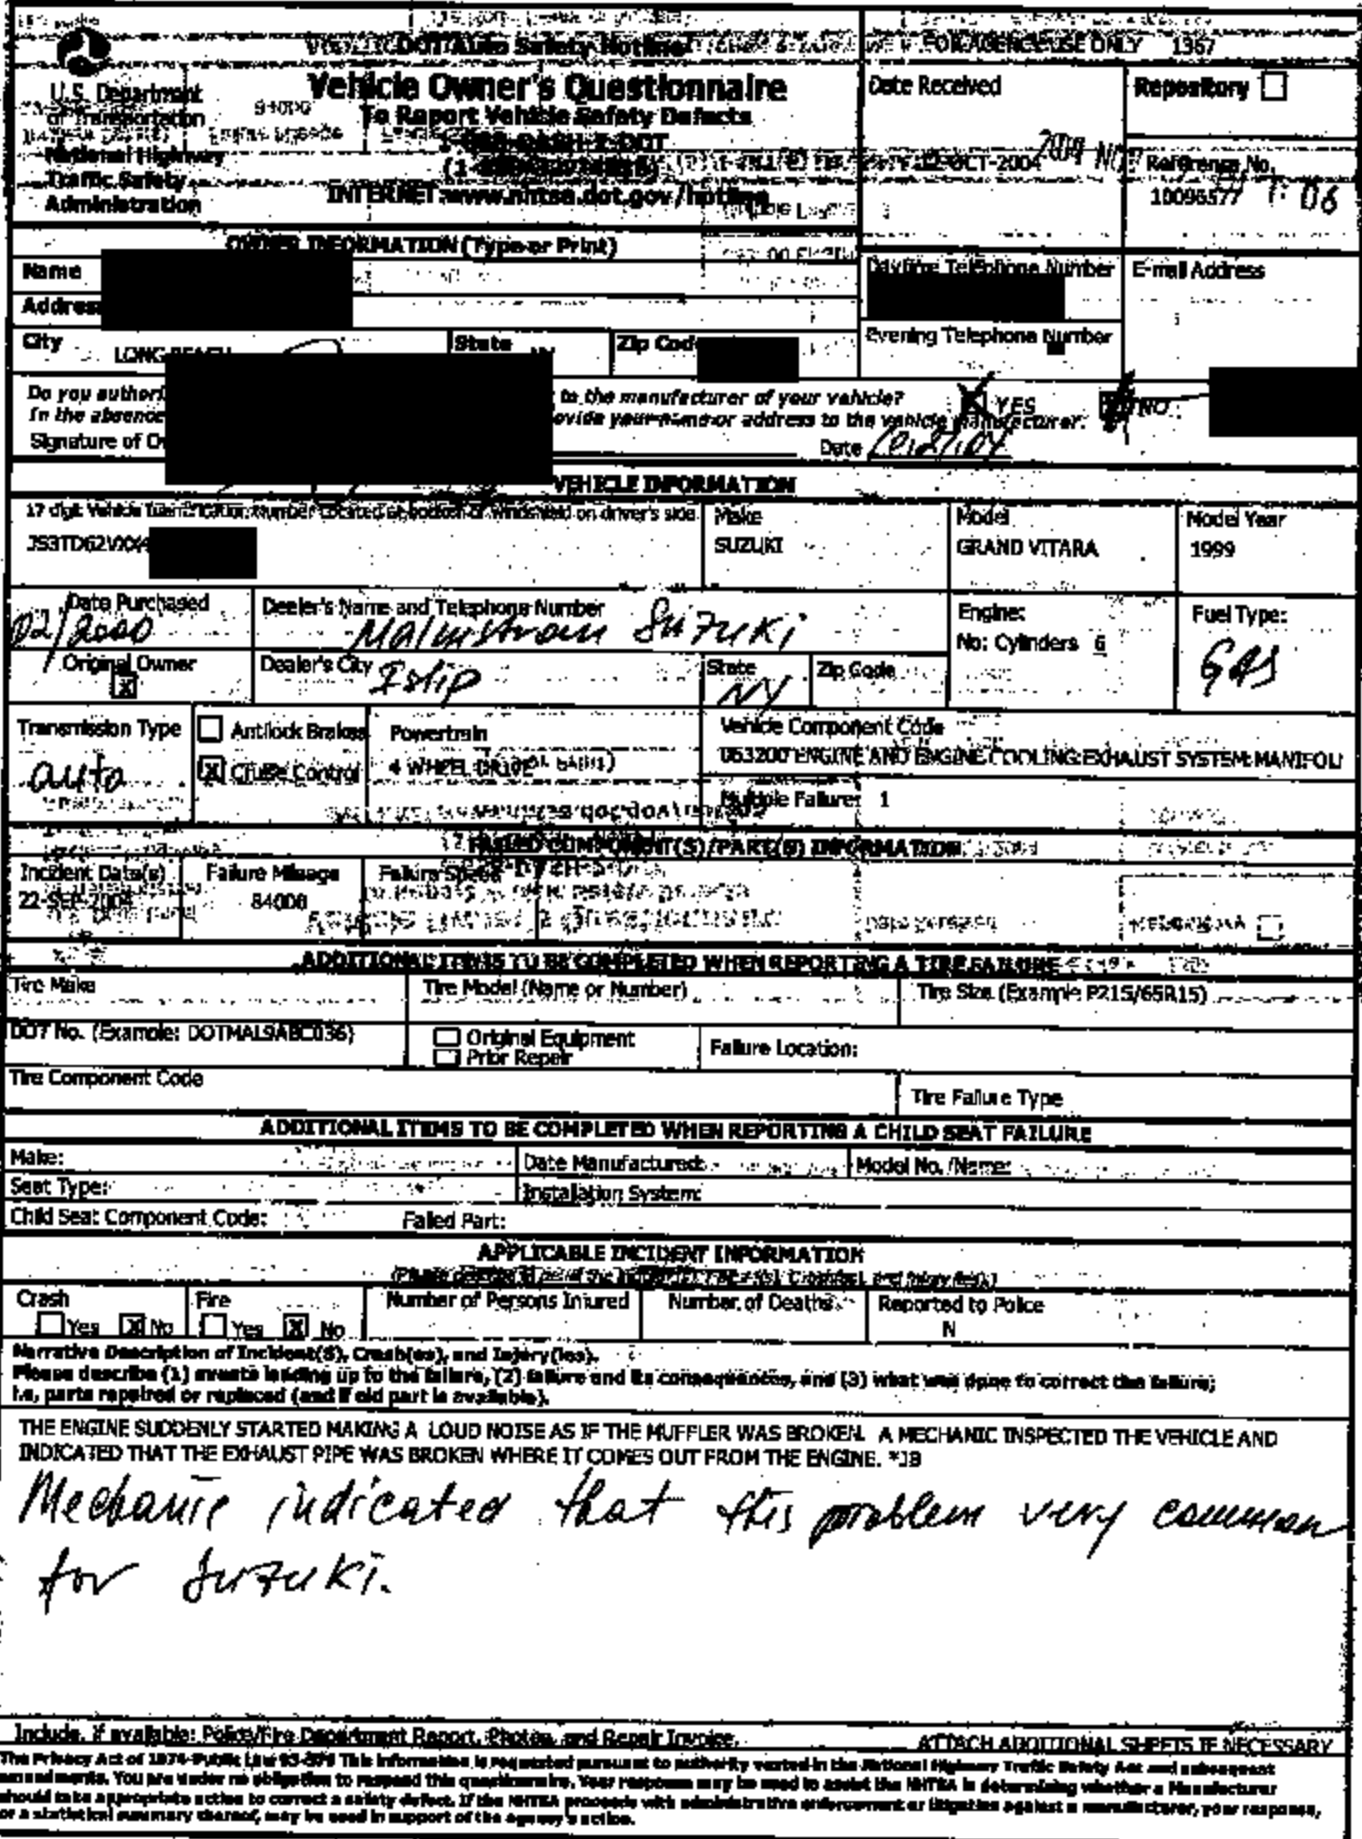 DOT Auto Safety Hotline
FOR AGENCY USE ONLY 1367
U.S. Department
of Transportation
National Highway
Traffic Safety
Administration
Vehicle Owner's Questionnaire
To Report Vehicle Safety Defects
INTERNET: www.nhtsa.dot.gov/hotline
Date Received
OCT-2004
Repository
Reference No.
10096577
OWNER INFORMATION (Type or Print)
Name
Address
Daytime Telephone Number
E-mail Address
City
LONG BEACH
State
Zip Code
Evening Telephone Number
Do you authori
to the manufacturer of your vehicle?
YES
NO
In the absence
ovide your name or address to the vehicle manufacturer.
Signature of Ow
Date
VEHICLE INFORMATION
17 digit Vehicle Identification Number Located at bottom of windshield on driver's side
Make
SUZUKI
Model
GRAND VITARA
Model Year
1999
Date Purchased
02/2000
Dealer's Name and Telephone Number
Malmstrom Suzuki
Engine:
No: Cylinders 6
Fuel Type:
GAS
Original Owner
X
Dealer's City
Islip
State
NY
Zip Code
Transmission Type
auto
Antilock Brakes
X Cruise Control
Powertrain
4 WHEEL DRIVE
Vehicle Component Code
063200 ENGINE AND ENGINE COOLING:EXHAUST SYSTEM:MANIFOL
Multiple Failure: 1
FAILED COMPONENT(S)/PART(S) INFORMATION
Incident Date(s)
22-SEP-2004
Failure Mileage
84000
Failure Speed
ADDITIONAL ITEMS TO BE COMPLETED WHEN REPORTING A TIRE FAILURE
Tire Make
Tire Model (Name or Number)
Tire Size (Example P215/65R15)
DOT No. (Example: DOTMAL9ABC036)
Original Equipment
Prior Repair
Failure Location:
Tire Component Code
Tire Failure Type
ADDITIONAL ITEMS TO BE COMPLETED WHEN REPORTING A CHILD SEAT FAILURE
Make:
Date Manufactured:
Model No./Name:
Seat Type:
Installation System:
Child Seat Component Code:
Failed Part:
APPLICABLE INCIDENT INFORMATION
Crash
Yes X No
Fire
Yes X No
Number of Persons Injured
Number of Deaths
Reported to Police
N
Narrative Description of Incident(s), Crash(es), and Injury(ies).
Please describe (1) events leading up to the failure, (2) failure and its consequences, and (3) what was done to correct the failure;
i.e, parts repaired or replaced (and if old part is available).
THE ENGINE SUDDENLY STARTED MAKING A LOUD NOISE AS IF THE MUFFLER WAS BROKEN. A MECHANIC INSPECTED THE VEHICLE AND
INDICATED THAT THE EXHAUST PIPE WAS BROKEN WHERE IT COMES OUT FROM THE ENGINE. *JB
Mechanic indicated that this problem very common
for Suzuki.
Include, if available: Police/Fire Department Report, Photos, and Repair Invoice.
ATTACH ADDITIONAL SHEETS IF NECESSARY
The Privacy Act of 1974-Public Law 93-579 This information is requested pursuant to authority vested in the National Highway Traffic Safety Act and subsequent
amendments. You are under no obligation to respond this questionnaire. Your response may be used to assist the NHTSA in determining whether a Manufacturer
should take appropriate action to correct a safety defect. If the NHTSA proceeds with administrative enforcement or litigation against a manufacturer, your response,
or a statistical summary thereof, may be used in support of the agency's action.